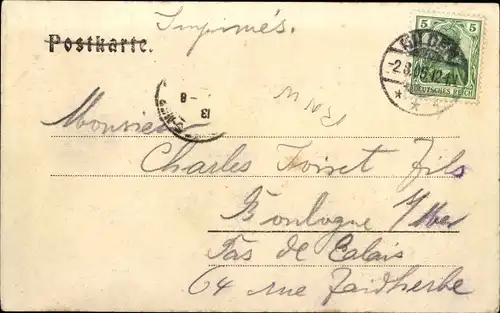 Imprimés.
Postkarte.
5 5
DEUTSCHES REICH
-2.8.05.12-1
13
8
Monsieur
Charles Noiset fils
Boulogne s/Mer
Pas de Calais
64 rue Faidherbe